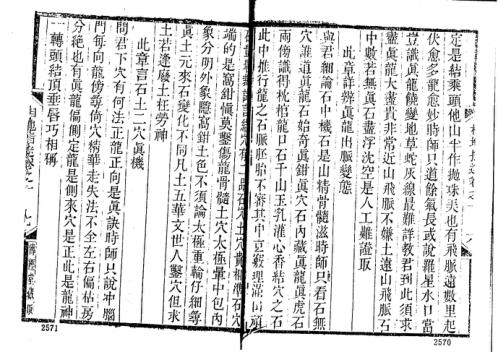 定是結乘頭他山半作拋球失也有飛脈遠數里起
伏愈多龍愈妙時師只道餘氣長或說羅星水口當
豈識眞龍饒變地草蛇灰線最難詳教君到此須求
盡眞龍大盡貴非常近山飛脈不嫌土遠山飛脈石
中數若無眞石盡浮沈空是人工難證取
此章詳辨眞龍出脈變態
與君細論石中機石是山精骨髓滋時師只看石無
穴誰道眞龍石始奇眞鉗眞穴石內藏眞龍眞虎石
兩傍識得枕棺龍口石千山玉乳灌心香結穴之石
此中推行龍之石脈胚胎不審其中豆殼理滿山頑
2570
有二品石穴土穴貴相準石穴
端的是窩鉗慎莫鑿傷龍骨髓土穴太極暈中包內
象分明外象隱窩鉗土色不須論太極重輪仔細尋
眞土元來石變化不同凡土五華文世人鑿穴但求
土若逢廢土枉勞神
此章言石土二穴眞機
問君下穴有何法正龍正向是眞訣時師只說沖腦
門每向龍傍尋倚穴精華走失法不全左右偏枯房
分絕也有眞龍偏側定龍是側來穴是正此是龍神
一轉頭結頂垂唇巧相稱
2571